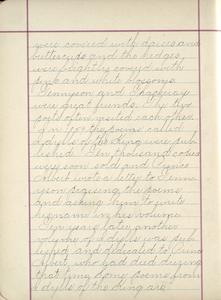 were covered with daisies and
buttercups and the hedges
were brightly covered with
pink and white blossoms.
Tennyson and Thackeray
were great friends. The two
poets often visited each other.
In 1859 the poems called
Idylls of the King were pub
lished. Ten thousand copies
were soon sold and Prince
Albert wrote a letter to Tenn
yson praising the poems
and asking him to write
his name in his volume.
Ten years later another
volume of Idylls was pub
lished and dedicated to Prince
Albert, who had died during
that time. Some poems from
Idylls of the King are: